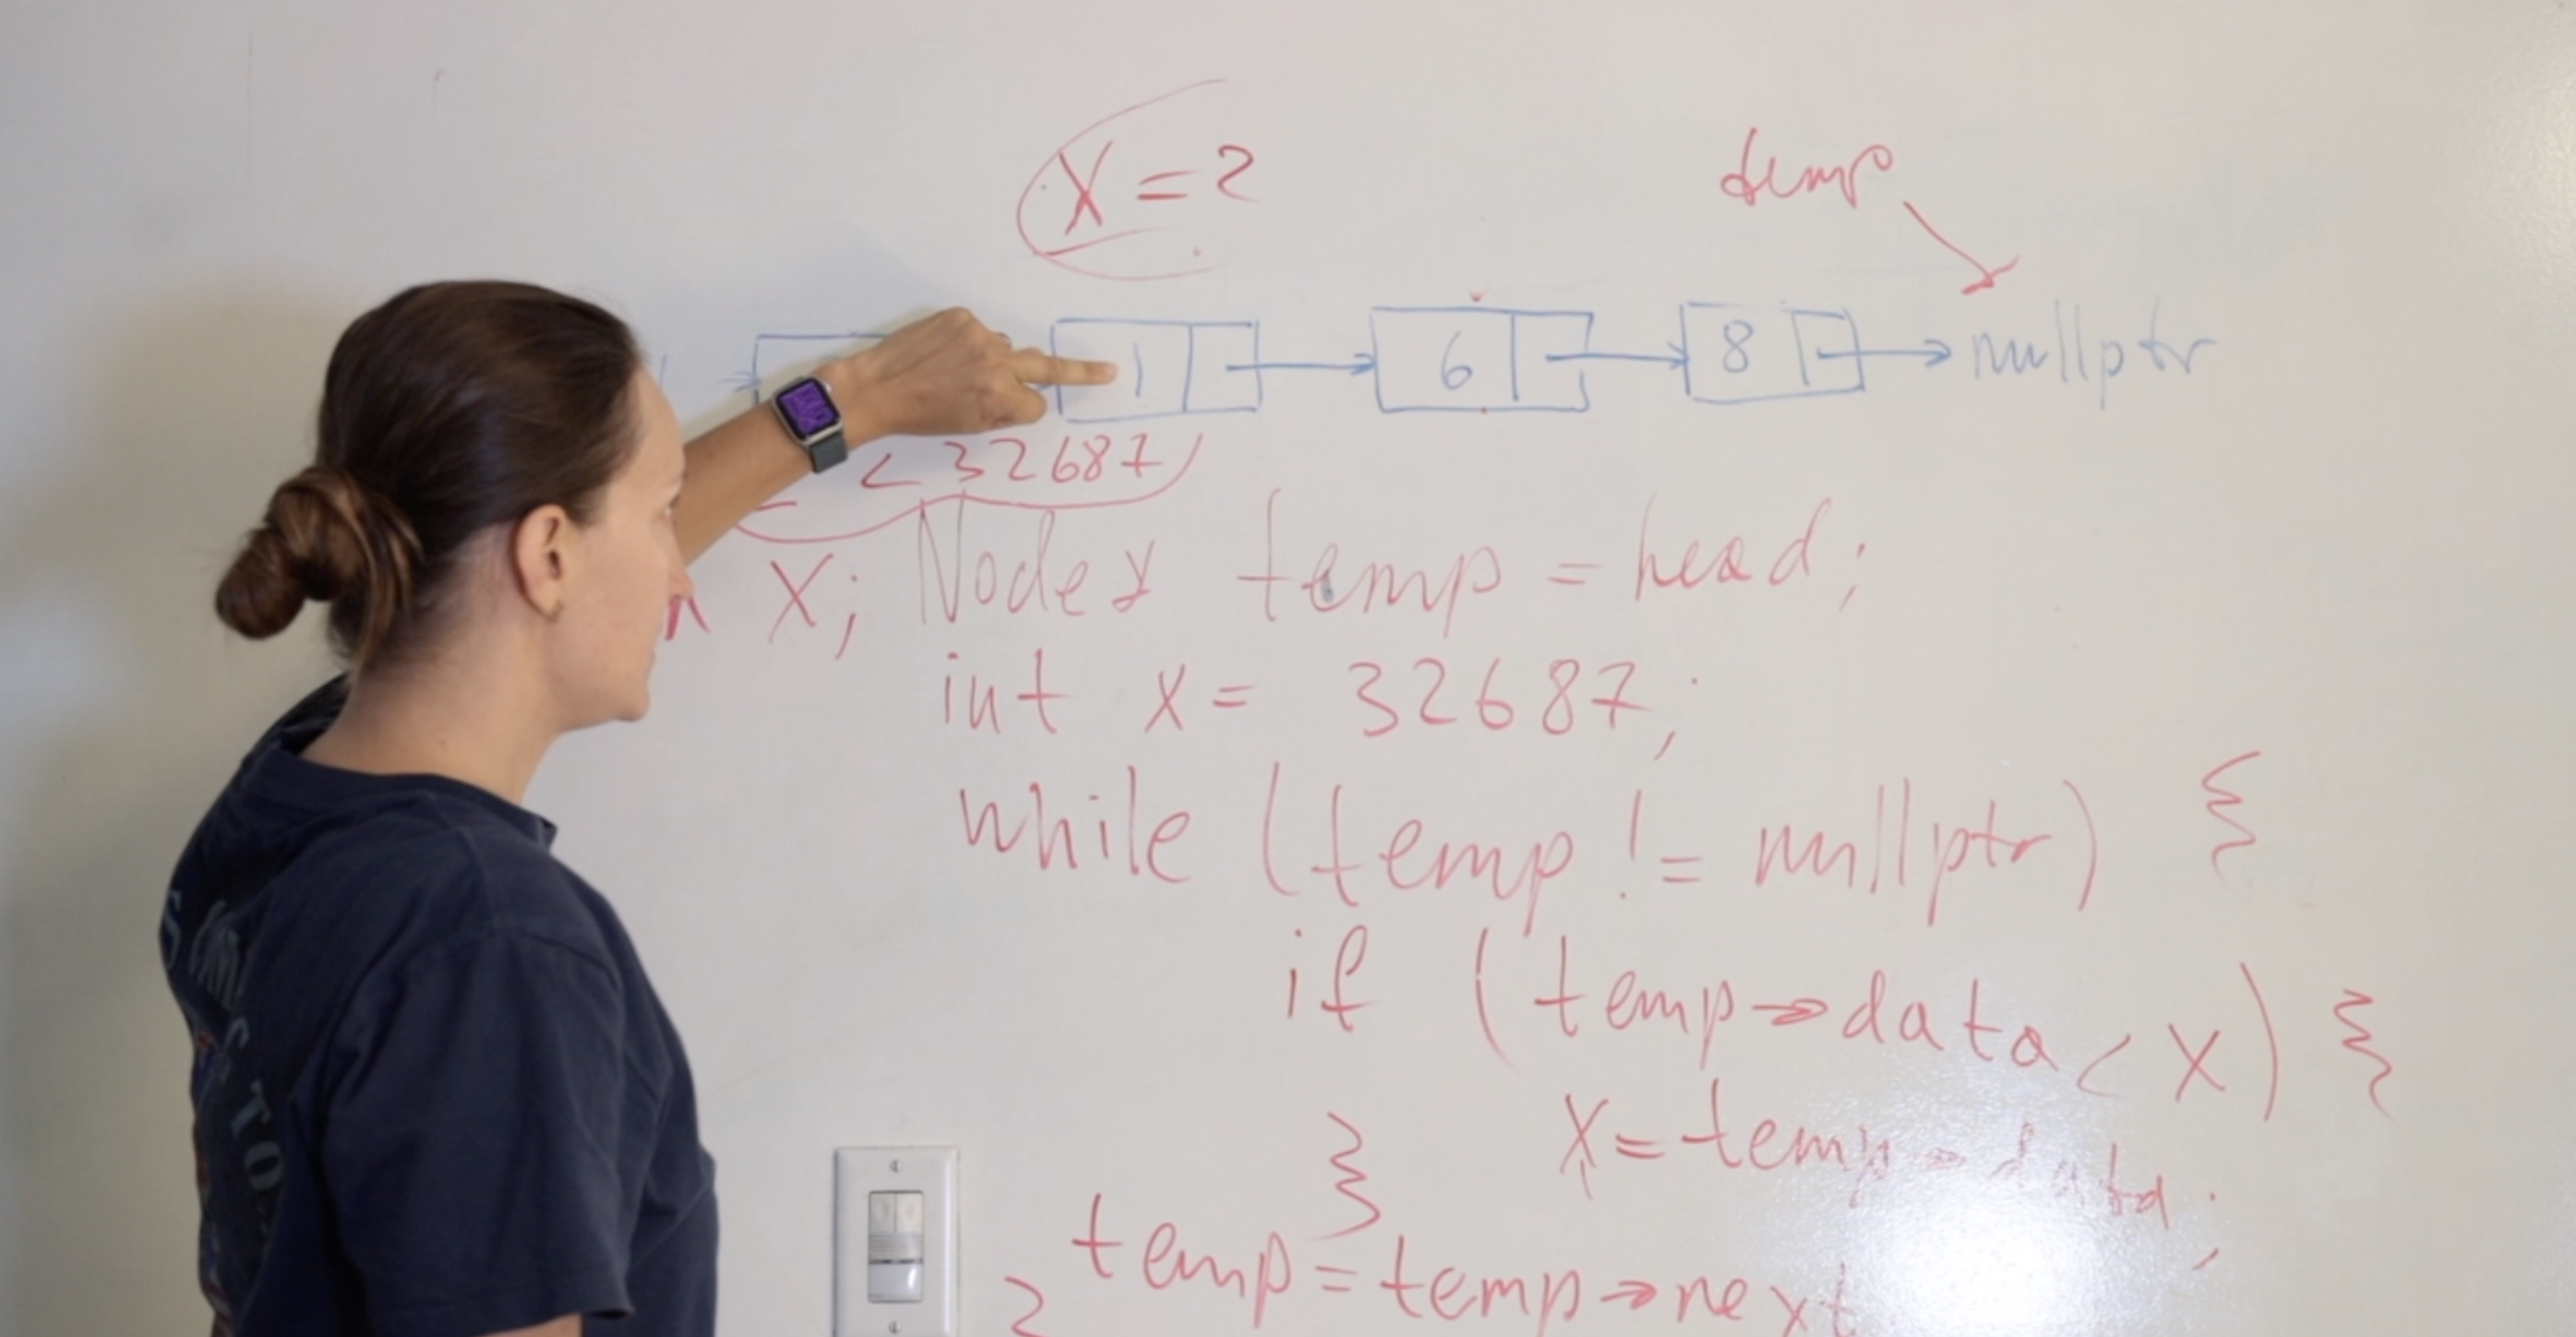 X = 2
temp
1 6 8 nullptr
< 32687
X; Node* temp = head;
int x = 32687;
while (temp != nullptr) {
if (temp→data < X) {
X = temp→data;
}
temp = temp→next